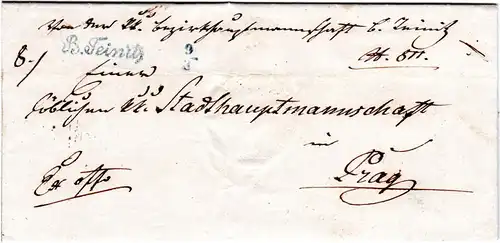 Von der kk. Bezirkshauptmannschaft B. Teinitz
B. Teinitz 9/5
8./
Einer
löblichen kk. Stadthauptmannschaft
in
Ex offo
Prag